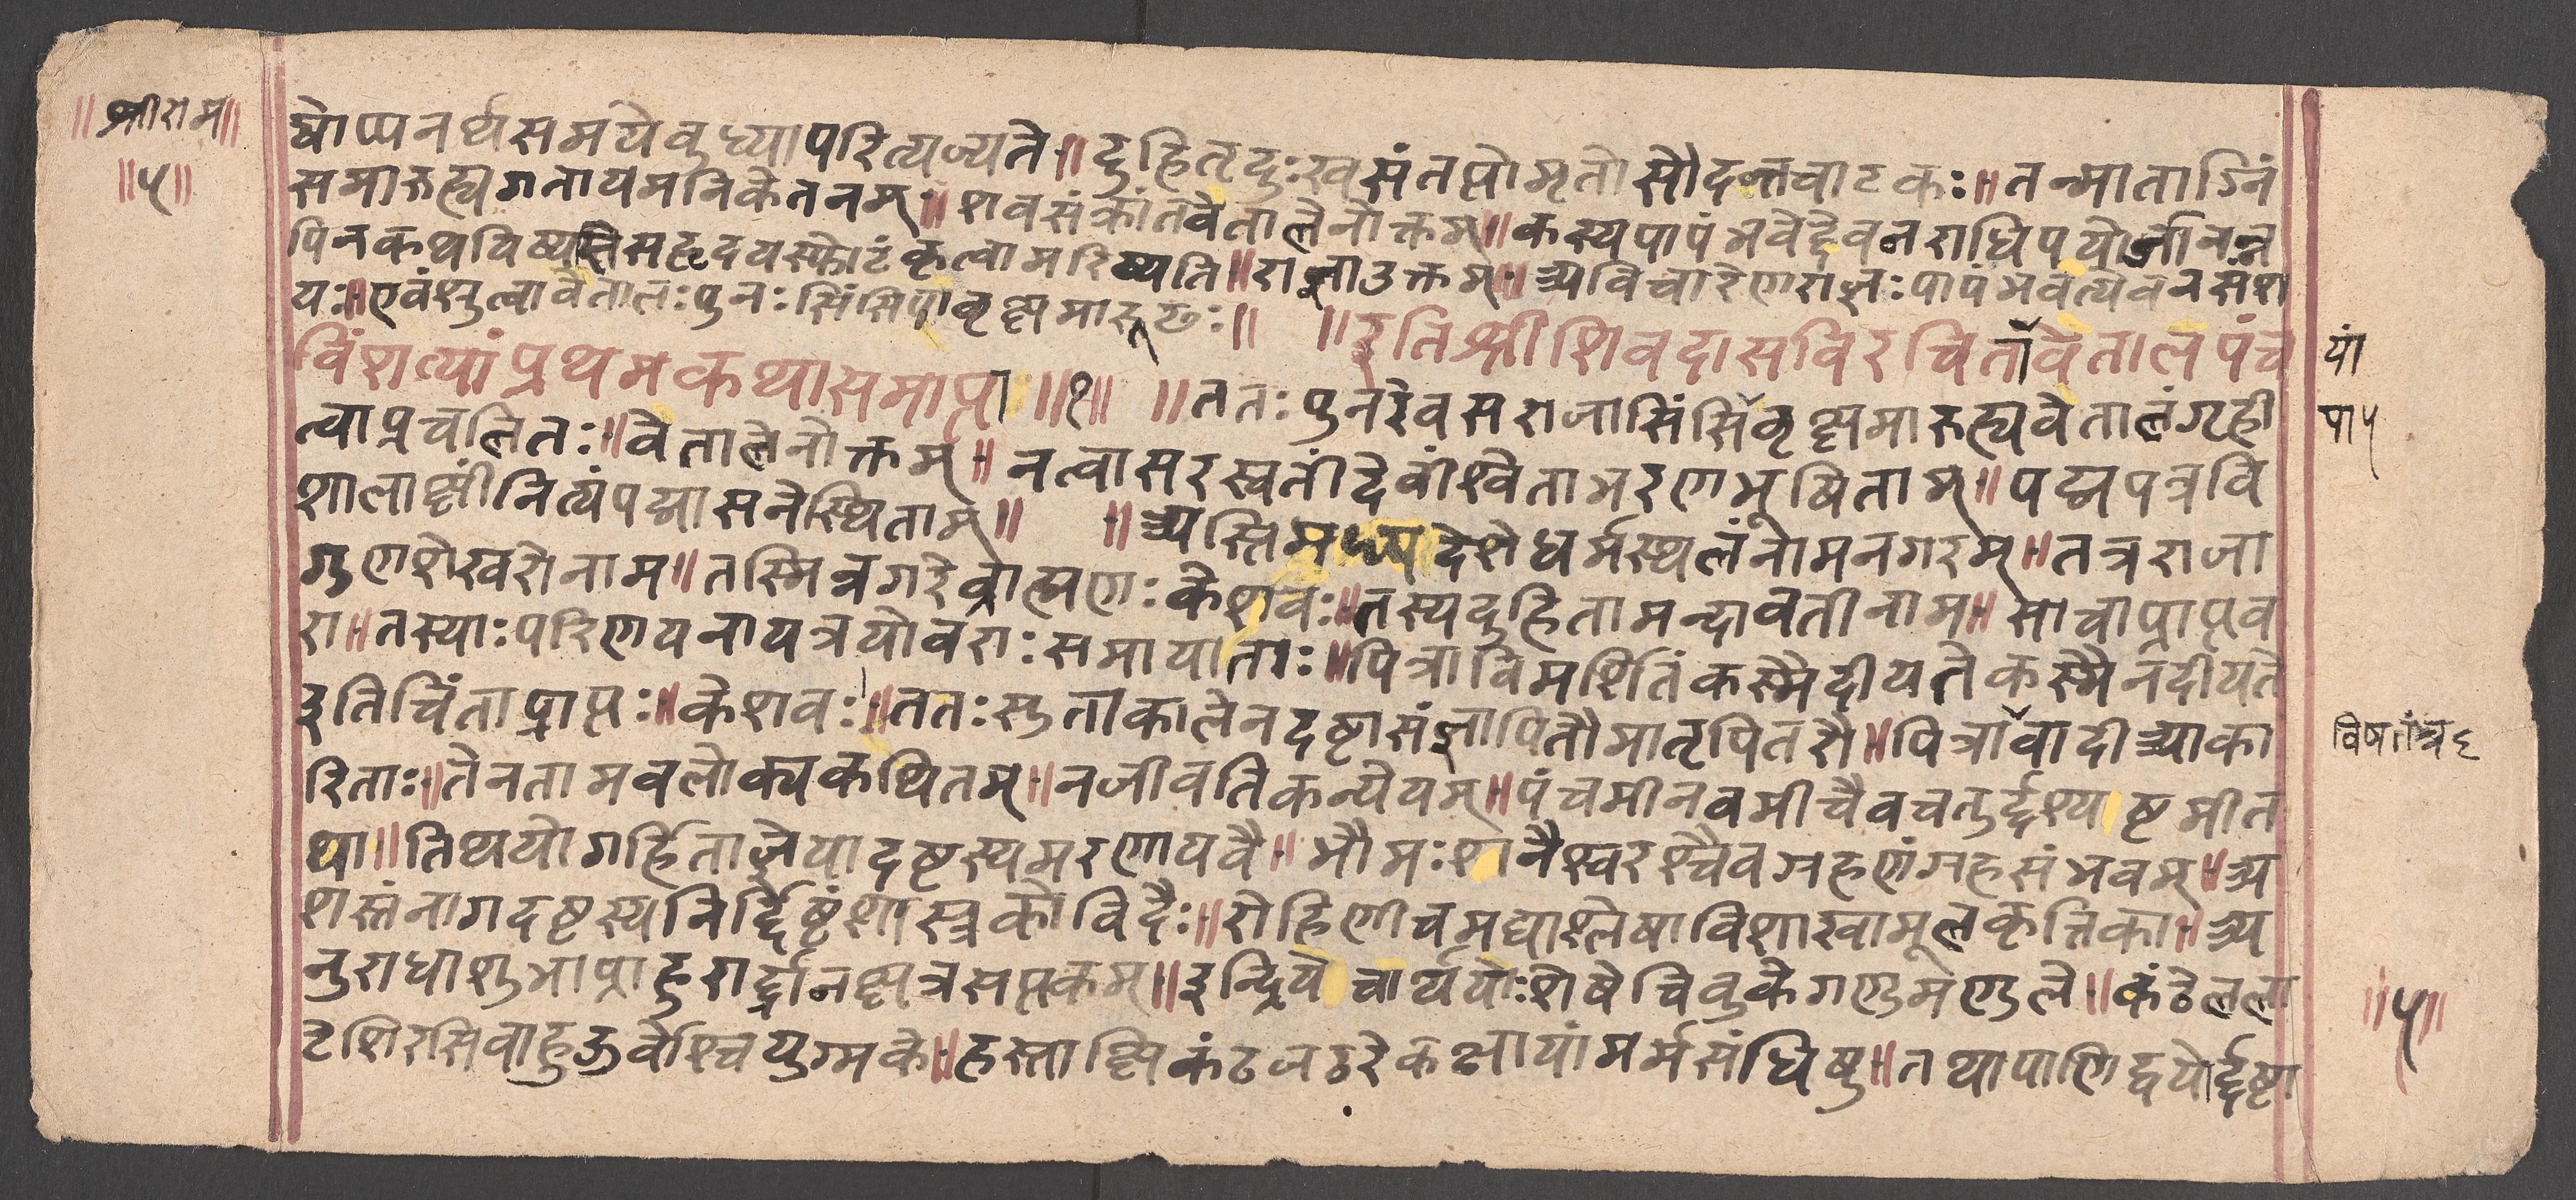 ॥श्रीराम॥
॥५॥
षोप्पनर्थसमयेवुध्यापरित्यज्यते॥दुहितृदुःखसंतप्तोमृतोसौदन्तवाटकः॥तन्माताग्निं
समारुह्यगतायमनिकेतनम्॥शवसंक्रांतवेतालेनोक्तम्॥कस्यपापंभवेद्देवनराधिपयोर्जानन्न
पिनकथयिष्यसिसहृदयस्फोटंकृत्वामरिष्यति॥राज्ञाउक्तम्॥अविचारेणराज्ञःपापंभवत्येवनसंश
यः॥एवंश्रुत्वावेतालःपुनःसिंसिपावृक्षमारूढः॥ ॥इतिश्रीशिवदासविरचितांवेतालपंच
यां
विंशत्यांप्रथमकथासमाप्ता॥१॥ ॥ततःपुनरेवसराजासिंसिंवृक्षमारुह्यवेतालंगृही
पा५
त्वाप्रचलितः॥वेतालेनोक्तम्॥नत्वासरस्वतींदेवींश्वेताभरणभूषिताम्॥पद्मपत्रवि
शालाक्षींनित्यंपद्मासनेस्थिताम्॥ ॥अस्तिमध्यदेशेधर्मस्थलंनामनगरम्॥तत्रराजा
गुणशेखरोनाम॥तस्मिन्नगरेब्राह्मणःकेशवः॥तस्यदुहितामन्दावतीनाम॥साचाप्राप्तव
रा॥तस्याःपरिणयनायत्रयोवराःसमायाताः॥पित्राविमर्शितंकस्मैदीयतेकस्मैनदीयते
इतिचिंताप्राप्तः॥केशवः॥ततःसुताकालेनदष्टासंज्ञापितौमातृपितरौ॥पित्रावादीआका
विषतंत्र६
रिताः॥तेनतामवलोक्यकथितम्॥नजीवतिकन्येयम्॥पंचमीनवमीचैवचतुर्द्दश्यष्टमीत
था॥तिथयोगर्हिताज्ञेयादष्टस्यमरणायवै॥भौमःशनैश्वरश्चैवग्रहणंग्रहसंभवम्॥अ
शस्तंनागदष्टस्यनिर्द्दिष्टंशास्त्रकोविदैः॥रोहिणीचमघाश्लेषाविशाखामूलकृत्तिका॥अ
नुराधाशुभाप्राहुरार्द्रानक्षत्रसप्तकम्॥इन्द्रियेचार्थयोःशेषेचिवुकेगण्डमण्डले॥कंठेलला
॥५॥
टेशिरसिवाहुऊर्वोश्चियुग्मके॥हस्ताक्षिकंठजठरेकक्षायांमर्मसंधिषु॥तथापाणिद्वयोर्द्दष्टा